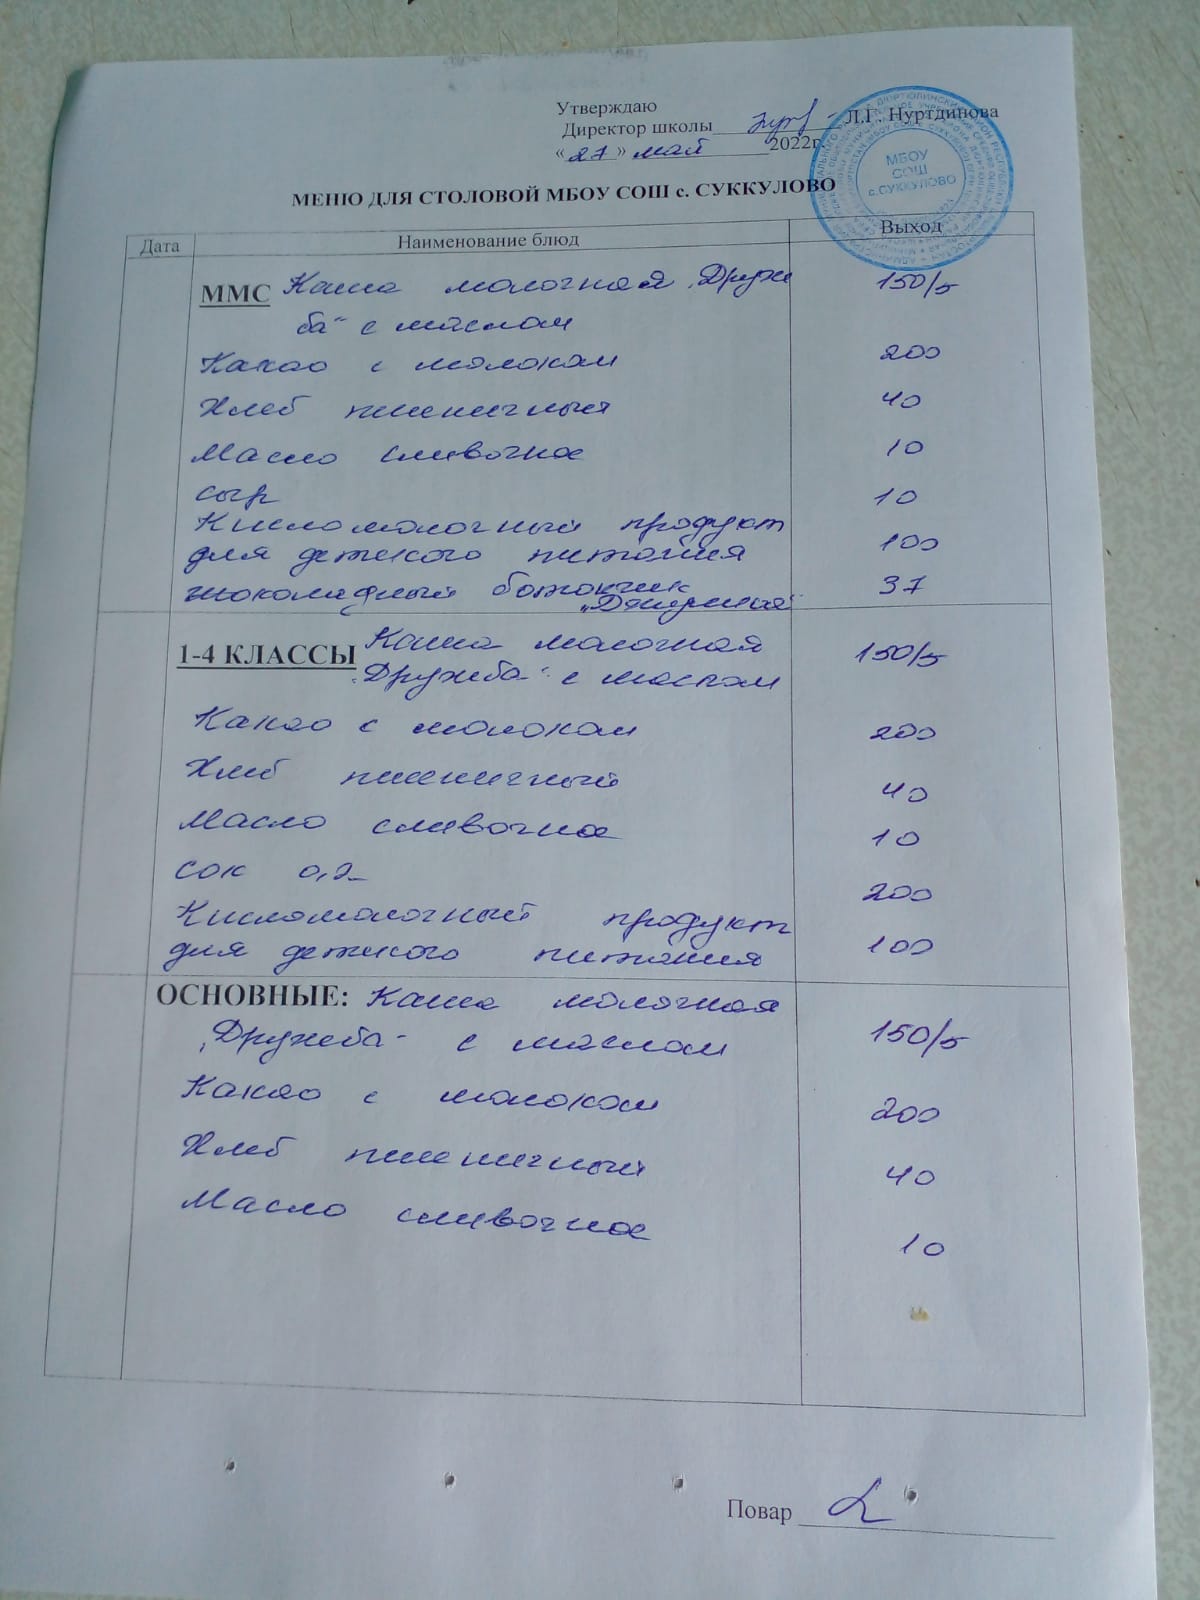 Утверждаю
Директор школы Л.Г. Нуртдинова
« 27 » май 2022г.
МБОУ
СОШ
с.СУККУЛОВО
МЕНЮ ДЛЯ СТОЛОВОЙ МБОУ СОШ с. СУККУЛОВО
Дата Наименование блюд Выход
ММС Каша молочная „Друж 150/5
ба“ с маслом
Какао с молоком 200
Хлеб пшеничный 40
Масло сливочное 10
сыр 10
Кисломолочный продукт
для детского питания 100
шоколадный батончик 37
1-4 КЛАССЫ Каша молочная 150/5
„Дружба“ с маслом
Какао с молоком 200
Хлеб пшеничный 40
Масло сливочное 10
сок 0,2 200
Кисломолочный продукт
для детского питания 100
ОСНОВНЫЕ: Каша молочная
„Дружба“ с маслом 150/5
Какао с молоком 200
Хлеб пшеничный 40
Масло сливочное 10
Повар